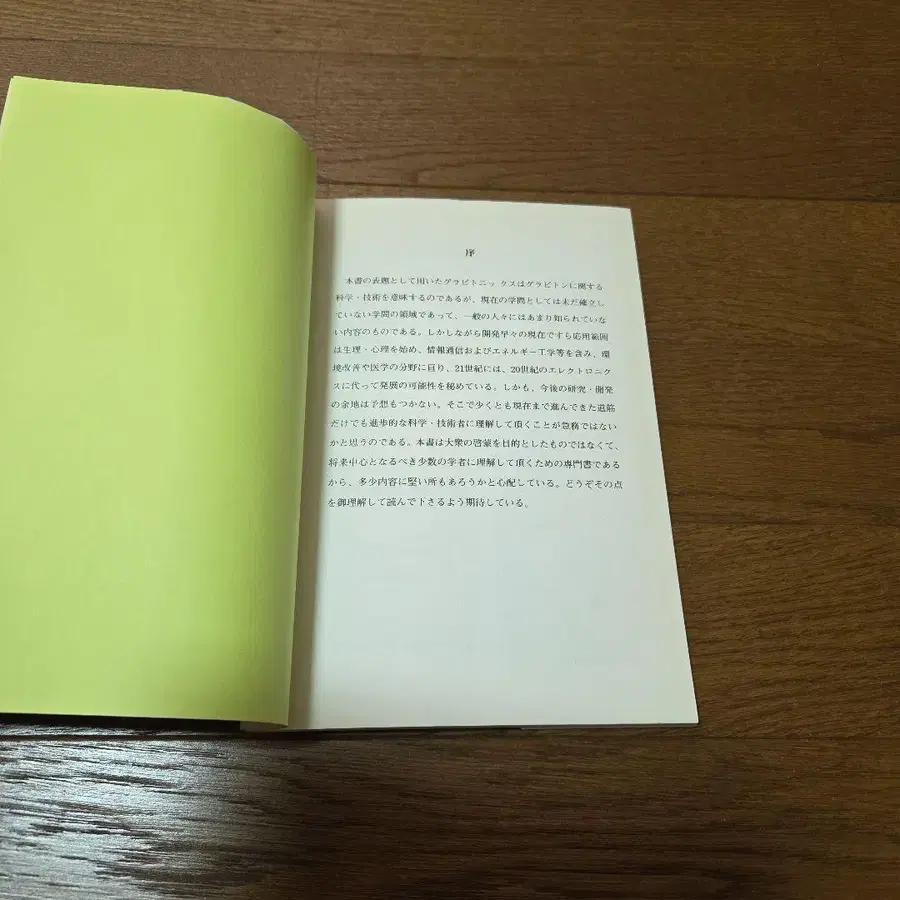 序
本書の表題として用いたグラビトニックスはグラビトンに関する
科学・技術を意味するのであるが、現在の学問としては未だ確立し
ていない学問の領域であって、一般の人々にはあまり知られていな
い内容のものである。しかしながら開発早々の現在ですら応用範囲
は生理・心理を始め、情報通信およびエネルギー工学等を含み、環
境改善や医学の分野に亘り、21世紀には、20世紀のエレクトロニク
スに代って発展の可能性を秘めている。しかも、今後の研究・開発
の余地は予想もつかない。そこで少くとも現在まで進んできた道筋
だけでも進歩的な科学・技術者に理解して頂くことが急務ではない
かと思うのである。本書は大衆の啓蒙を目的としたものではなくて、
将来中心となるべき少数の学者に理解して頂くための専門書である
から、多少内容に堅い所もあろうかと心配している。どうぞその点
を御理解して読んで下さるよう期待している。